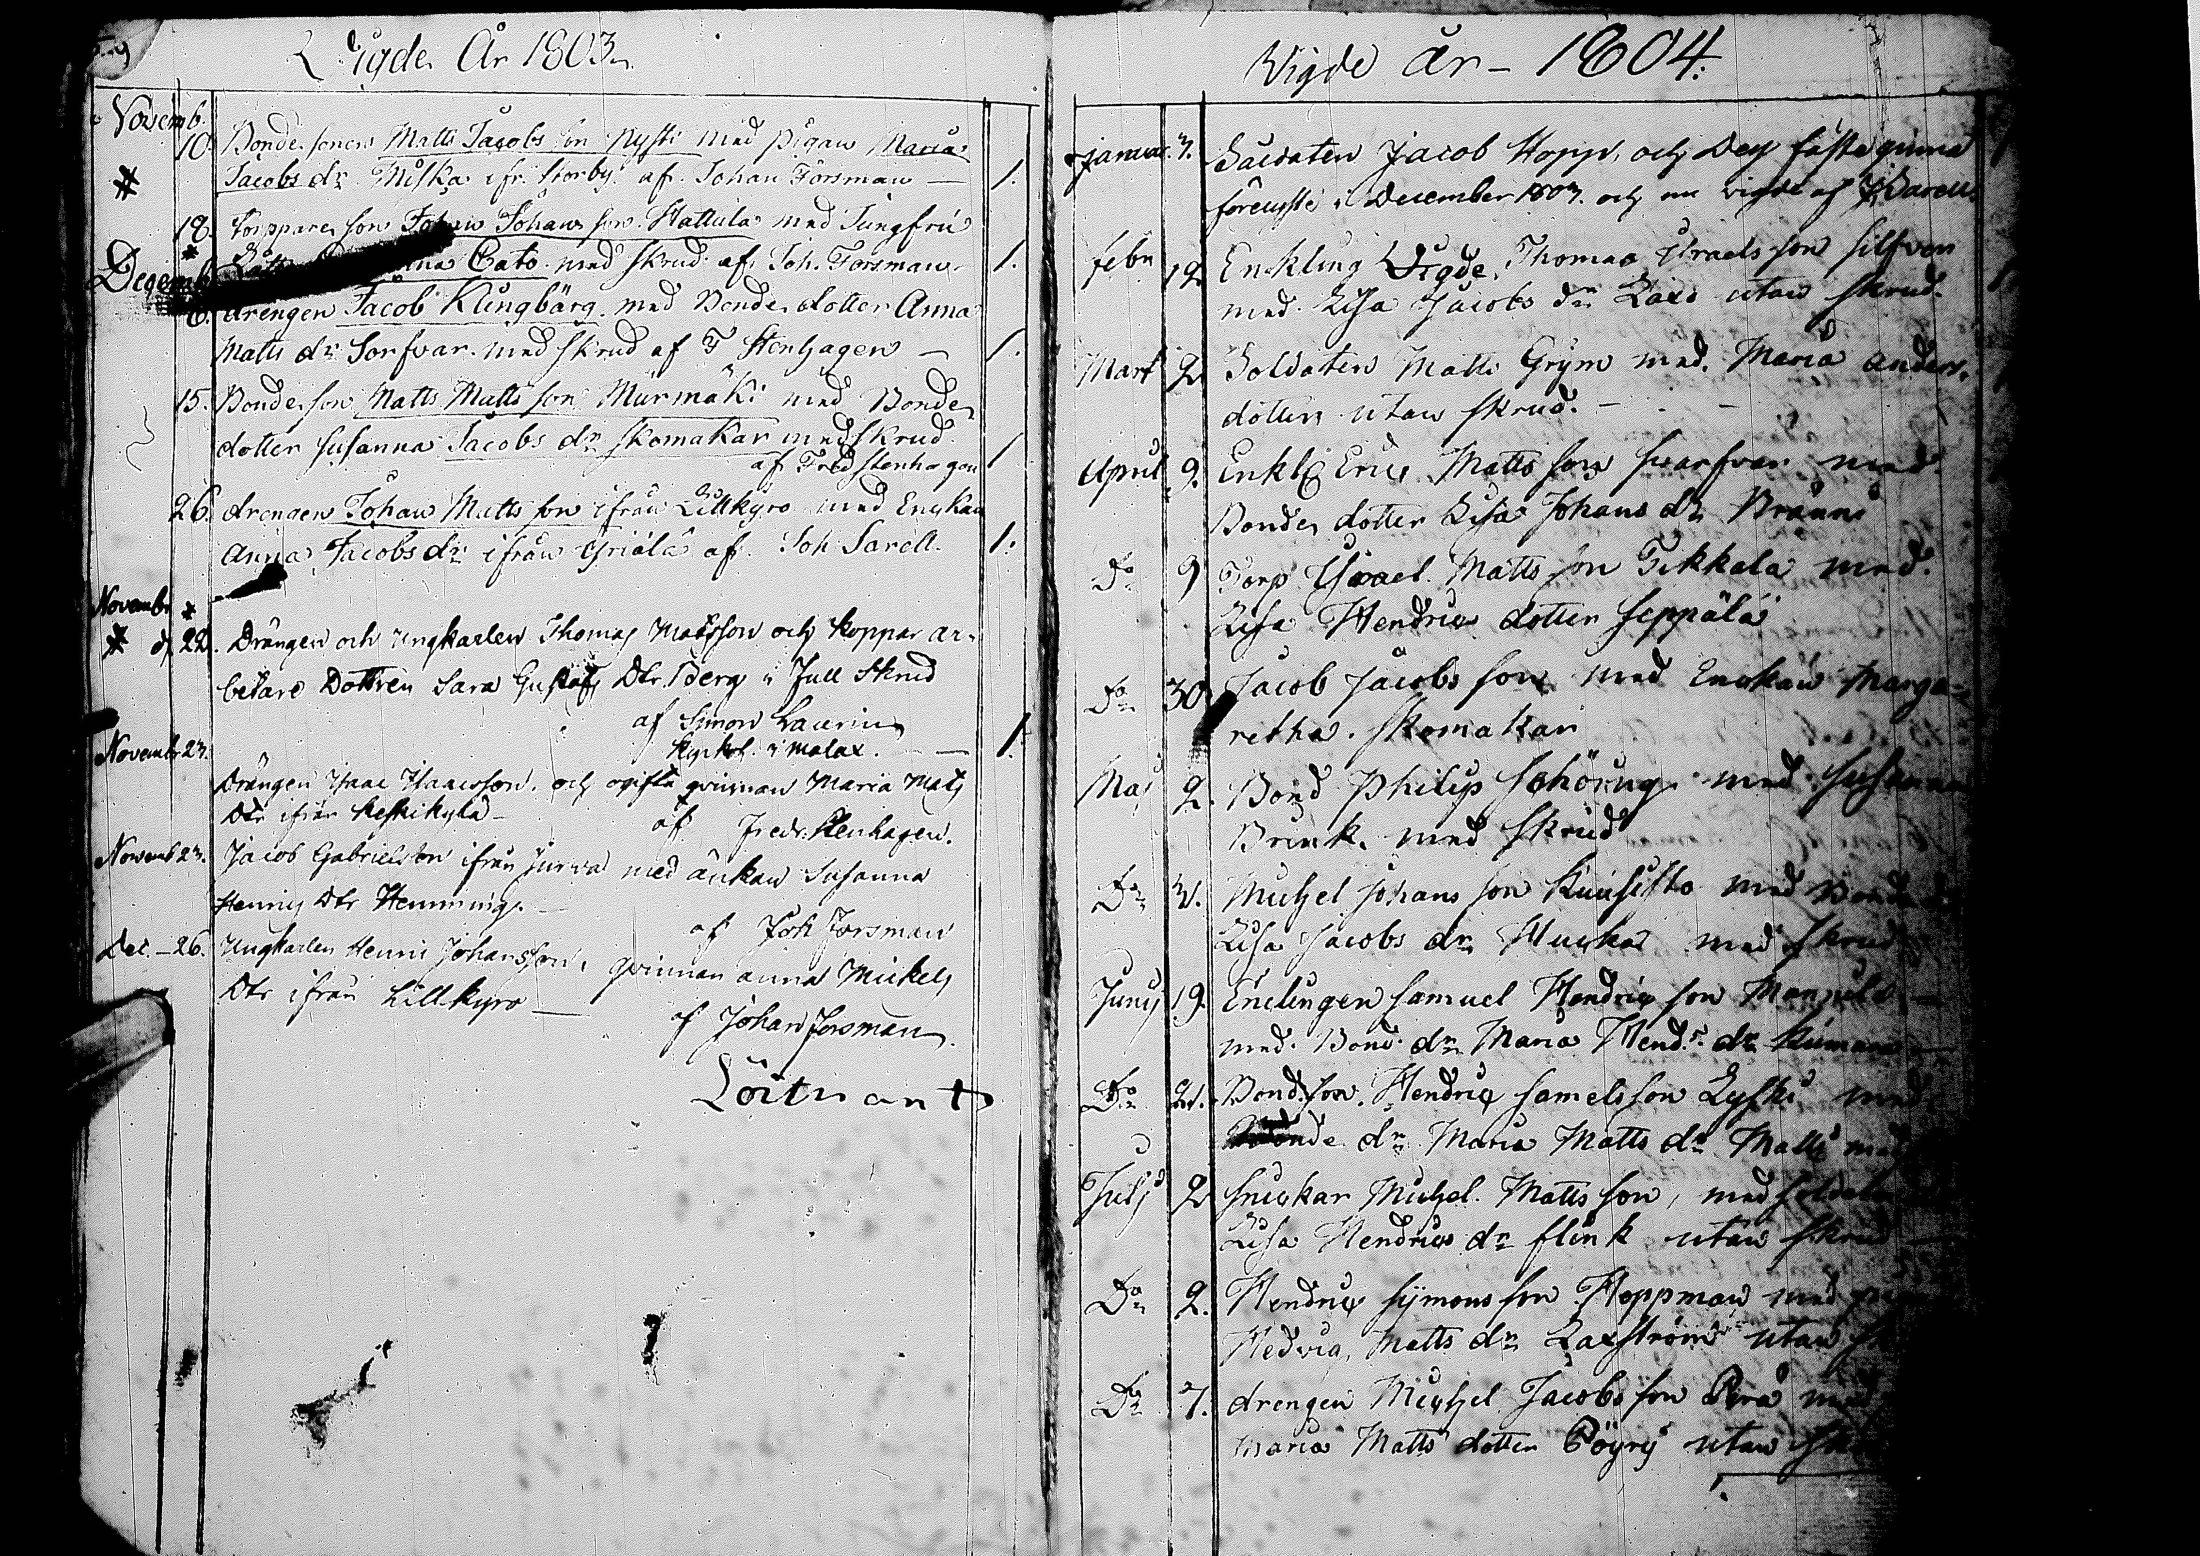 Vigde År 1803
Novemb.
10. Bonde sonen Matts Jacobs son Nysti med pigan Maria
Jacobs dr Miska ifr. Storby af Johan Forsman — 1.
18. Torppare son Johan Johans son Hattula med Jungfru
Cato med skrud af Joh. Forsman 1.
Decemb
6. drengen Jacob Klingbärg med Bonde dotter Anna
Matts dr Sorfvar med skrud af F Stenhagen — 1.
15. Bonde son Matts Matts son Murmäki med Bonde
dotter Susanna Jacobs dr Skomakar med skrud
af Fred Stenhagen 1
26. drengen Johan Matts son ifrån Lillkyro med Enckan
Anna Jacobs dr ifrån Griålä af Joh Sarell. 1.
Novembr
d. 22. Drängen och ungkarlen Thomas Matsson och koppar ar-
betare Dottren Sara Gustafs Dtr Berg i full skrud
af Simon Laurin
kyrkoh. i Malax. — 1.
Novembr 23.
Drängen Isaac Isaacsson, och ogifta qvinnan Maria Mats
Dtr ifrån Keskikylä —
af Fredr: Stenhagen.
Novemb 23. Jacob Gabrielsson ifrån Jurva med änkan Susanna
Henrics Dtr Hemming. —
af Joh Forsman
Dec. — 26. Ungkarlen Henric Johansson, qvinnan Anna Mickels
Dtr ifrån Lillkyro —
af Johan Forsman.
Löitnant
Vigde år — 1804.
Januar. 3. Soldaten Jacob Hopp, och Dess fästeqvinna
förenste i December 1803. och nu vigde af J Sarell
Febr 19 Enkling Vigde Thomas Israels son Silfver
med Lisa Jacobs dr Lax utan skrud.
Mart 2 Soldaten Matts Grym med Maria Anders
dotter utan skrud. —
April 9. Enkl Eric Matts son Svarfvar med
Bonde dotter Lisa Johans dr Bränni
Do 9 Torp Israel Matts son Tikkala med
Lisa Hendrics dotter Seppälä
Do 30 Jacob Jacobs son med Enckan Marga-
retha Skomakar
Maj 2. Bond Philip Schöring med Susanna
Brink med skrud
Do 21. Michel Johans son Kuusisto med Bonde
Lisa Jacobs dr Hucka med skrud
Junij 19. Enclingen Samuel Hendric son
med Bond dr Maria Hend.s dr
Do 21. Bond. son Hendric Samels son Lyski med
Bonde dr Maria Matts dr Matts
Julj 2 Snickar Michel Matts son, med
Lisa Hendrics dr Flink utan skrud
Do 2. Hendric Symons son Hoppman med
Hedvig Matts dr Laxström utan
Do 7. drengen Michel Jacobs son Perä med
Maria Matts dotter Pöyry utan